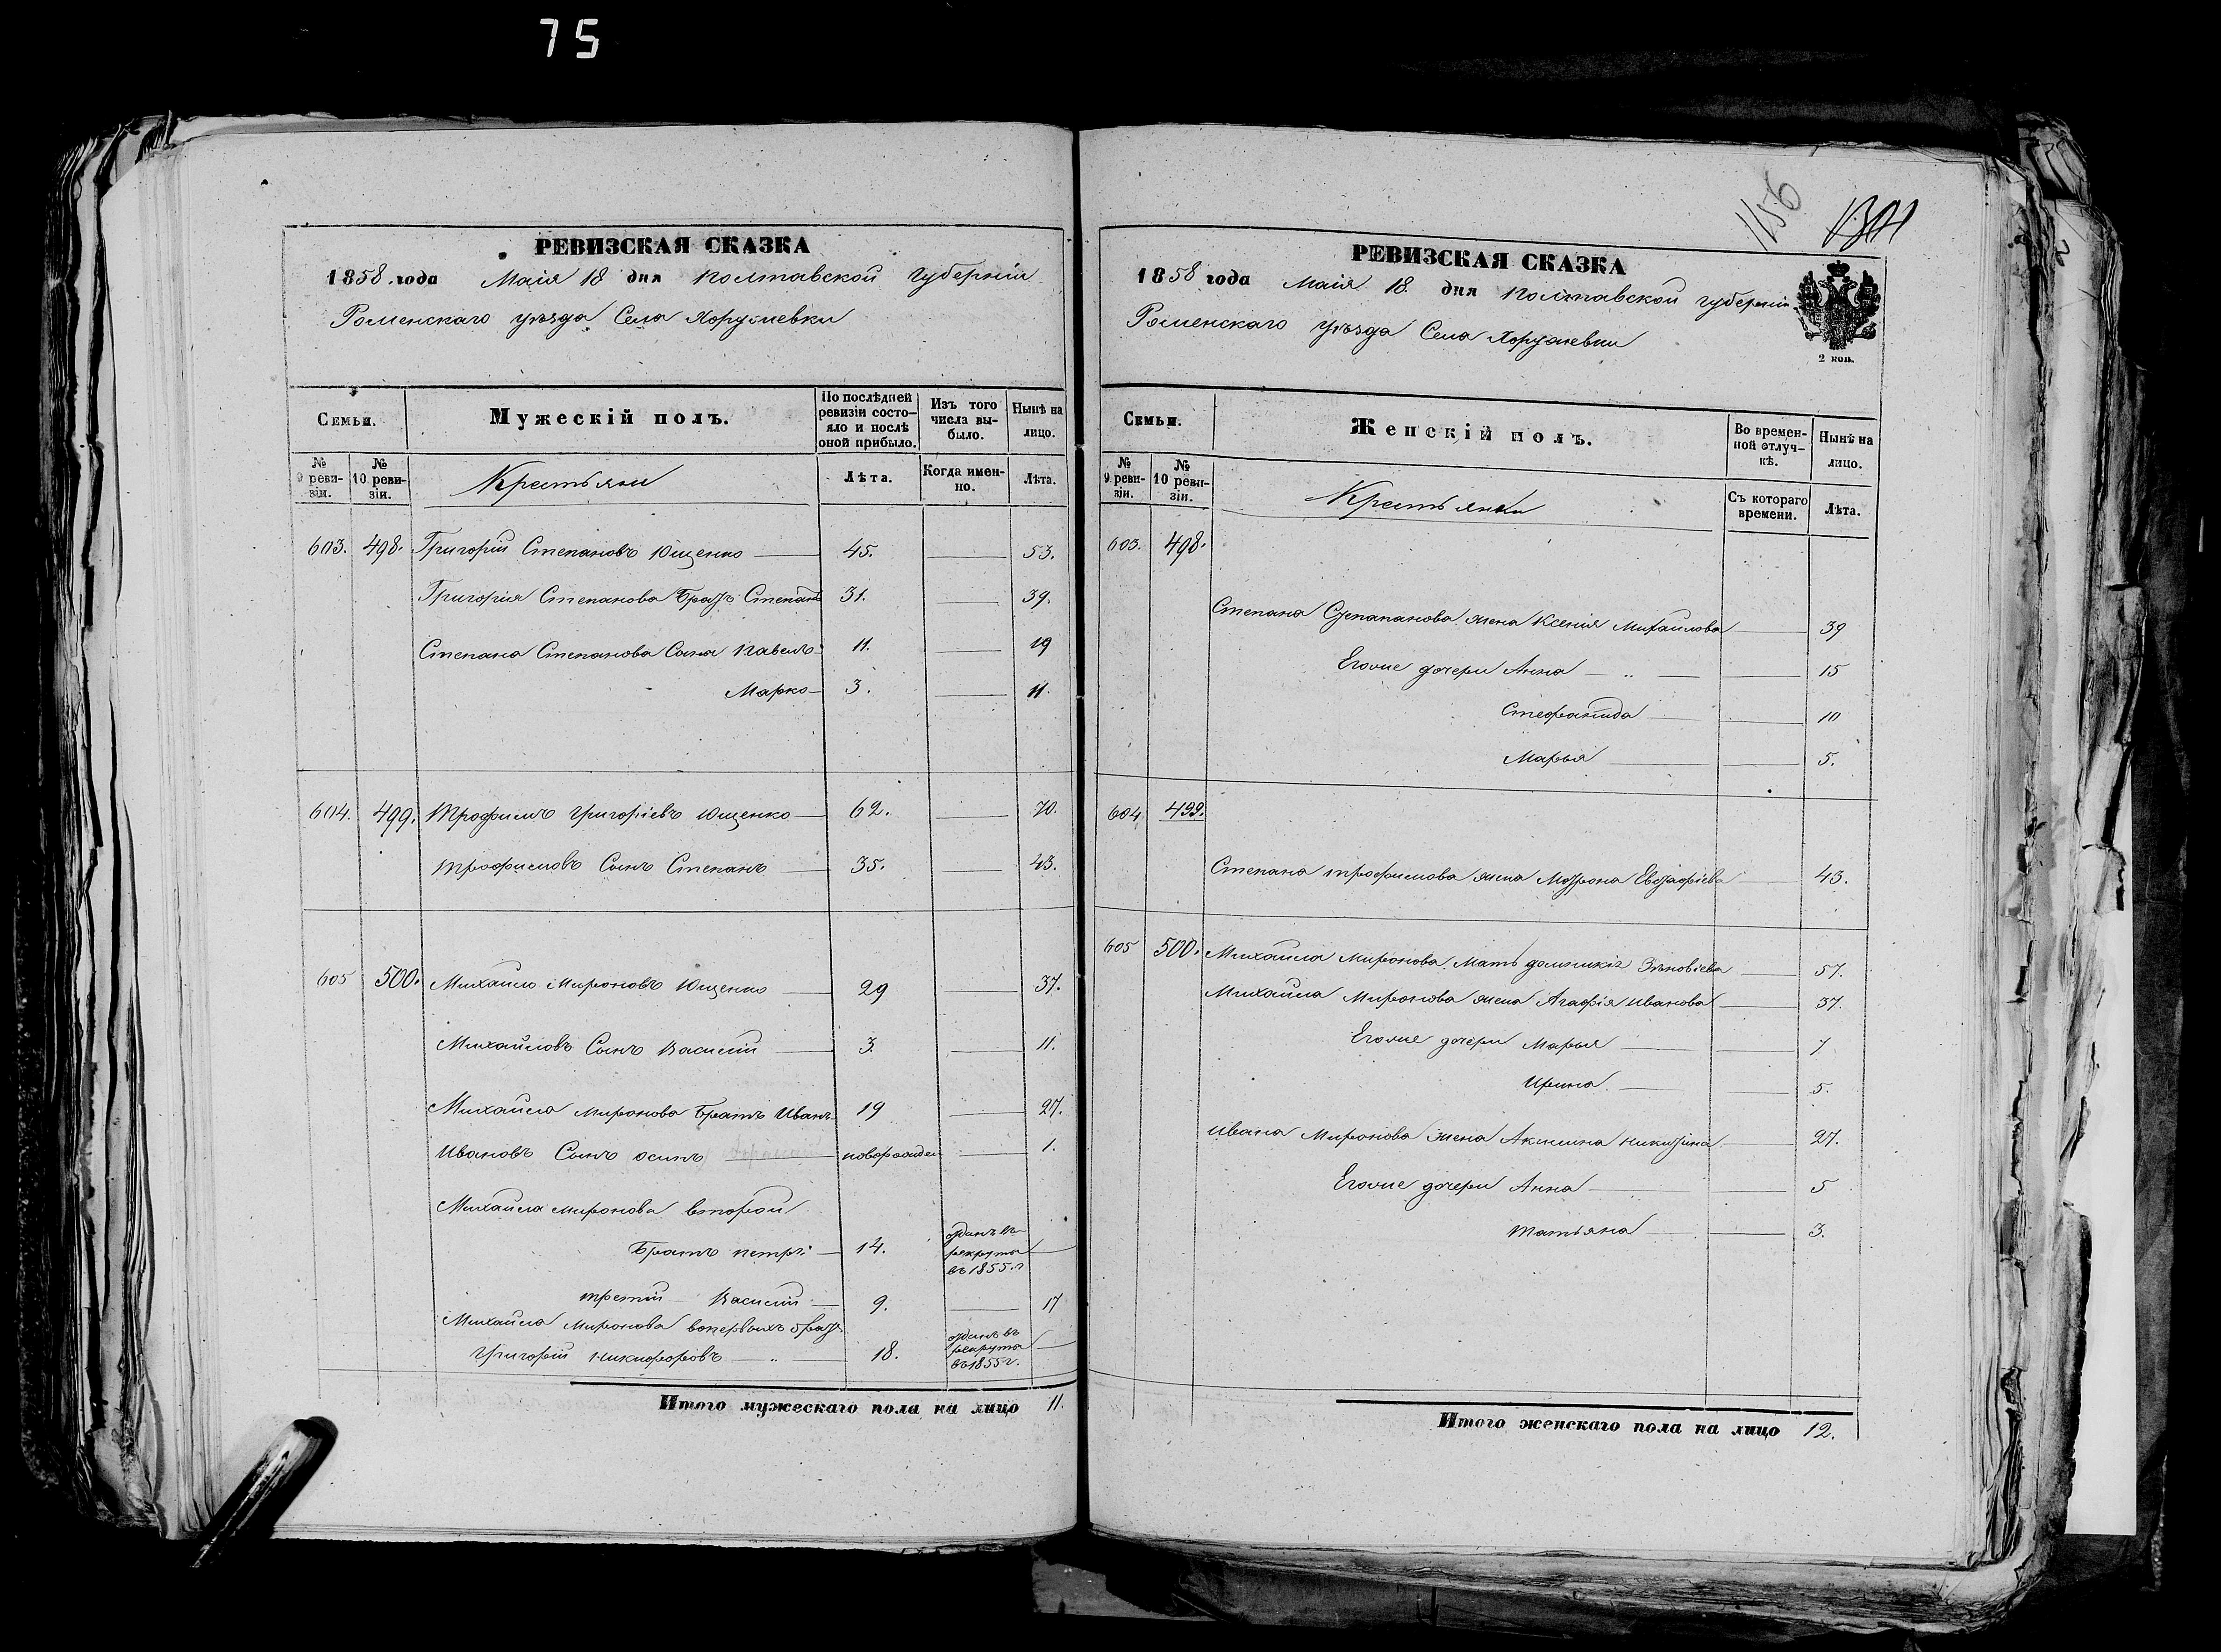 75
РЕВИЗСКАЯ СКАЗКА
1858 года Маія 18 дня Полтавской Губерніи
Роменскаго уѣзда Села Хоружевки
Семьи. Мужескій полъ. По послѣдней ревизіи состояло и послѣ оной прибыло. Изъ того числа выбыло. Нынѣ на лицо.
№ 9 ревизіи. № 10 ревизіи. Крестьяни Лѣта. Когда именно. Лѣта.
603. 498. Григорій Степановъ Ющенко 45. 53.
Григорія Степанова Братъ Степанъ 31. 39.
Степана Степанова Сыня Павелъ 11. 19
Марко 3. 11.
604. 499. Трофимъ Григоріевъ Ющенко 62. 70.
Трофимовъ Сынъ Степанъ 35. 43.
605 500. Михайло Мироновъ Ющенко 29 37.
Михайловъ Сынъ Василій 3. 11.
Михайла Миронова Братъ Иванъ 19 27.
Ивановъ Сынъ Осипъ новорожден 1.
Михайла Миронова второй
Братъ Петръ 14. отданъ въ рекруты въ 1855 г
третій Василій 9. 17
Михайла Миронова воперьвыхъ братъ
Григорій Никифоровъ 18. отданъ въ рекруты въ 1855 г.
Итого мужескаго пола на лицо 11.
1156
РЕВИЗСКАЯ СКАЗКА
1858 года Маія 18. дня Полтавской Губерніи
Роменскаго Уѣзда Села Хоружевки
2 коп.
Семьи. Женскій полъ. Во временной отлучкѣ. Нынѣ на лицо.
№ 9 ревизіи. № 10 ревизіи. Крестьянки Съ котораго времени. Лѣта.
603. 498.
Степана Степапанова жена Ксенія Михайлова 39
Егоже дочери Анна 15
Стефанида 10
Марья 5.
604 499.
Степана Трофимова жена Мотрона Евстафіева 43.
605 500. Михайла Миронова Мать Домникія Зѣновіева 57.
Михайла Миронова жена Агафія Иванова 37.
Егоже дочери Марья 7.
Ирина 5.
Ивана Миронова жена Акилина Никитина 27.
Егоже дочери Анна 5
Татьяна 3.
Итого женскаго пола на лицо 12.